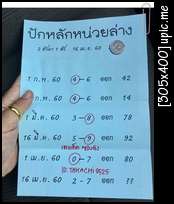 ปักหลักหน่วยล่าง
1 ก.พ. 60 4 - 6 ออก 92
16 ก.พ. 60 4 - 6 ออก 14
1 มี.ค. 60 3 - 8 ออก 78
16 มี.ค. 60 5 - 9 ออก 92
1 เม.ย. 60 0 - 7 ออก 80
ID: TAKACHI 9525
16 เม.ย. 60 2 - 7 ออก ??
[305x400] upic.me